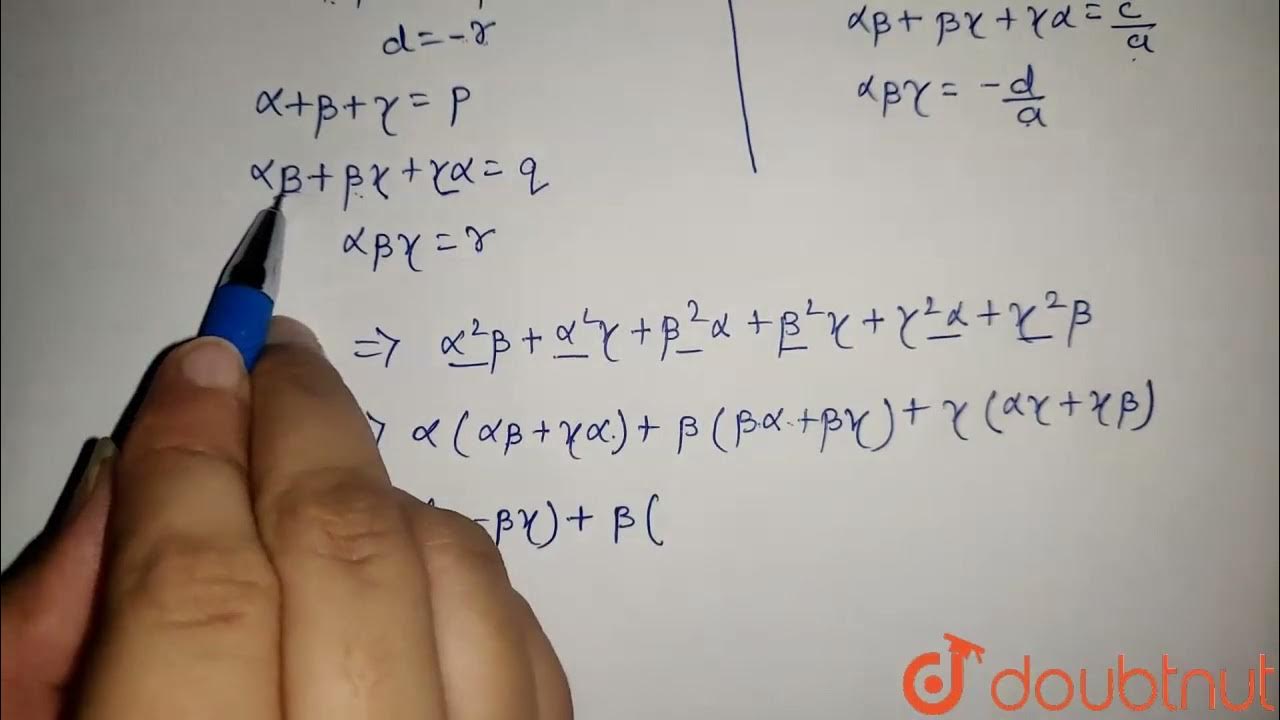 d = -r
α + β + γ = p
αβ + βγ + γα = q
αβγ = r
αβ + βγ + γα = c/a
αβγ = -d/a
=> α²β + α²γ + β²α + β²γ + γ²α + γ²β
α (αβ + γα) + β (βα + βγ) + γ (αγ + γβ)
- βγ) + β (
doubtnut